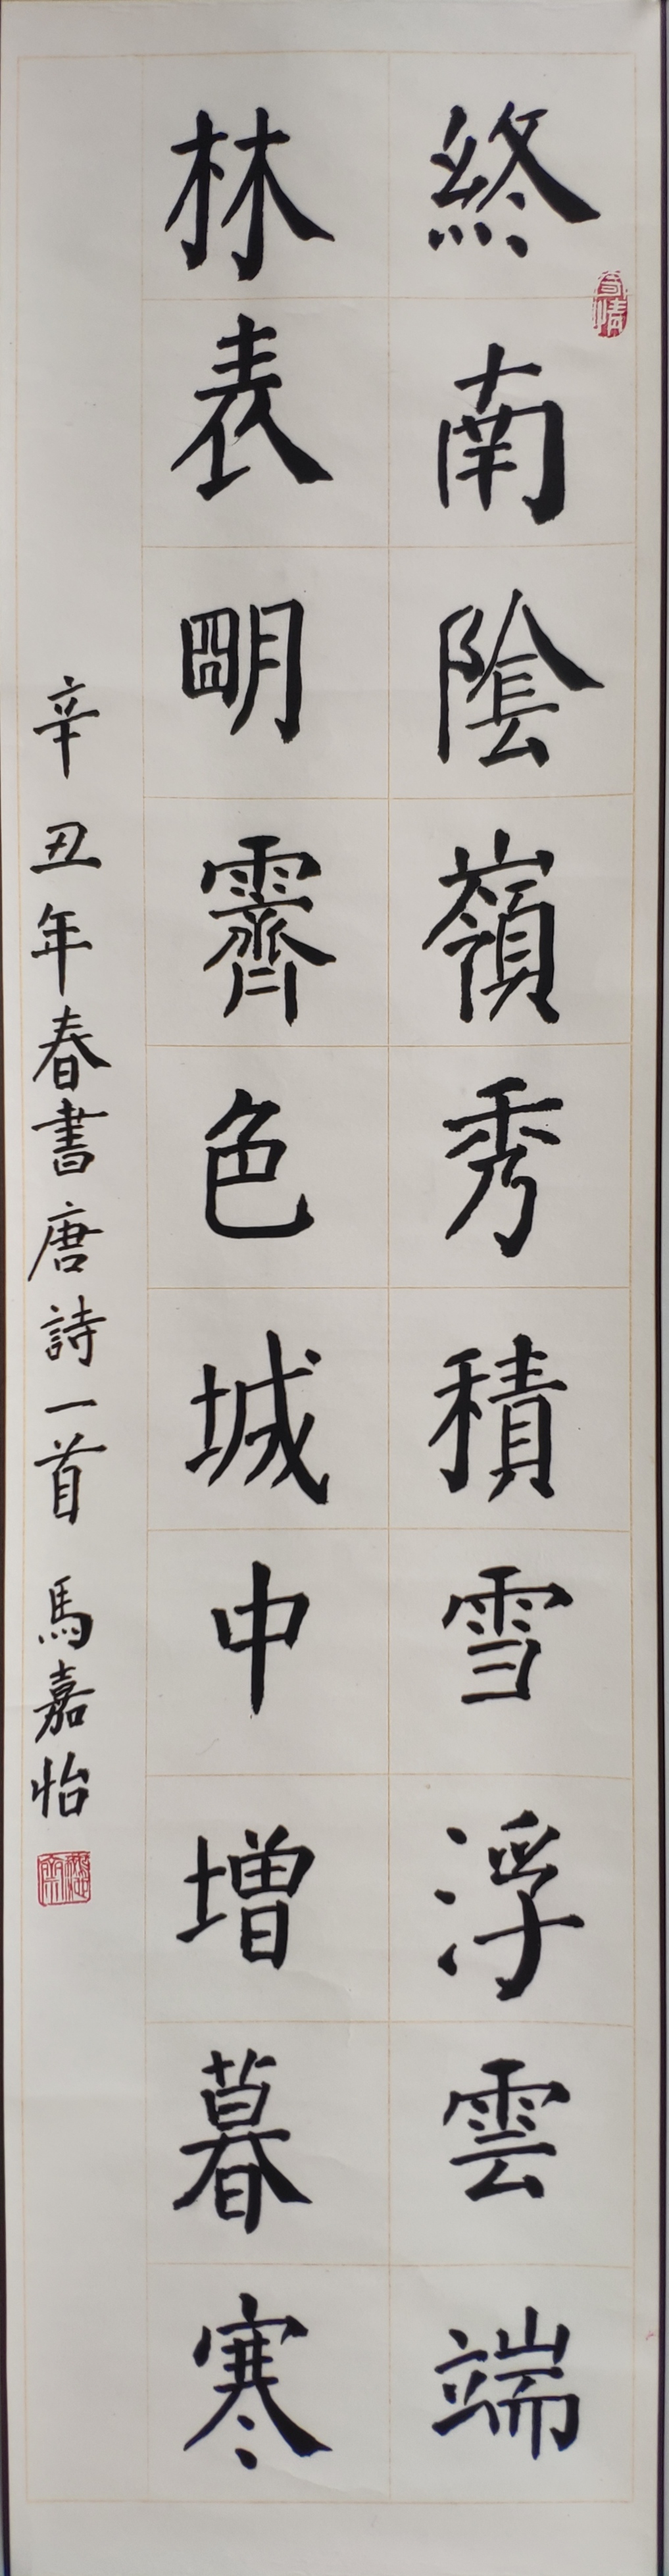 終南陰嶺秀積雪浮雲端
林表朙霽色城中增暮寒
辛丑年春書唐詩一首 馬嘉怡